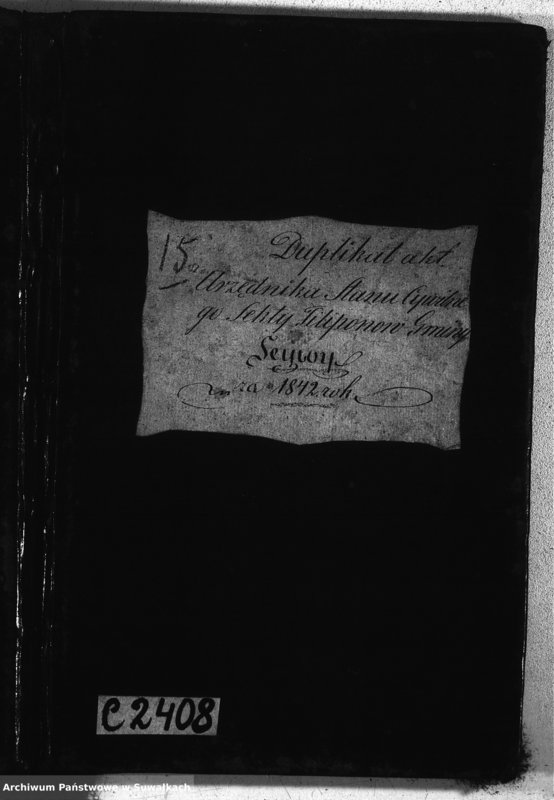 15a
Duplikat akt
Urzędnika Stanu Cywilne
go Sekty Filiponow Gminy
Seywy
za 1842 rok
C 2408
Archiwum Państwowe w Suwałkach